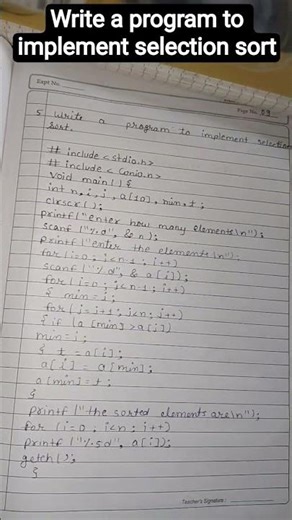 Write a program to
implement selection sort
Expt No.
Date
Page No. 59
5. Write a program to implement selection
sort.
# include <stdio.h>
# include <Conio.h>
Void main() {
int n, i, j, a[10], min, t;
clrscr();
printf("enter how many elements\n");
scanf("%d", & n);
printf("enter the elements\n");
for(i=0; i<n-1; i++)
scanf("%d", & a[i]);
for(i=0; i<n-1; i++)
{ min=i;
for(j=i+1; j<n; j++)
{ if (a[min]>a[j])
min=j;
{ t = a[i];
a[i] = a[min];
a[min]=t;
{
printf("the sorted elements are\n");
for (i=0; i<n; i++)
printf("%.5d", a[i]);
getch();
{
Teacher's Signature :